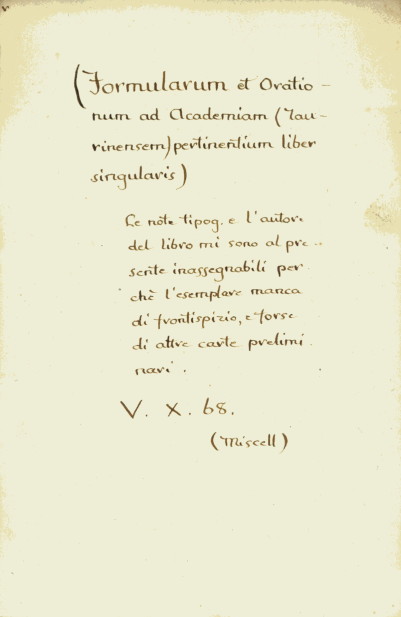 (Formularum et Oratio-
num ad Academiam (Tau-
rinensem) pertinentium liber
singularis)
Le note tipog. e l'autore
del libro mi sono al pre-
sente inassegnabili per
chè l'esemplare manca
di frontispizio, e forse
di altre carte prelimi
nari.
V. X. 68.
(Miscell)